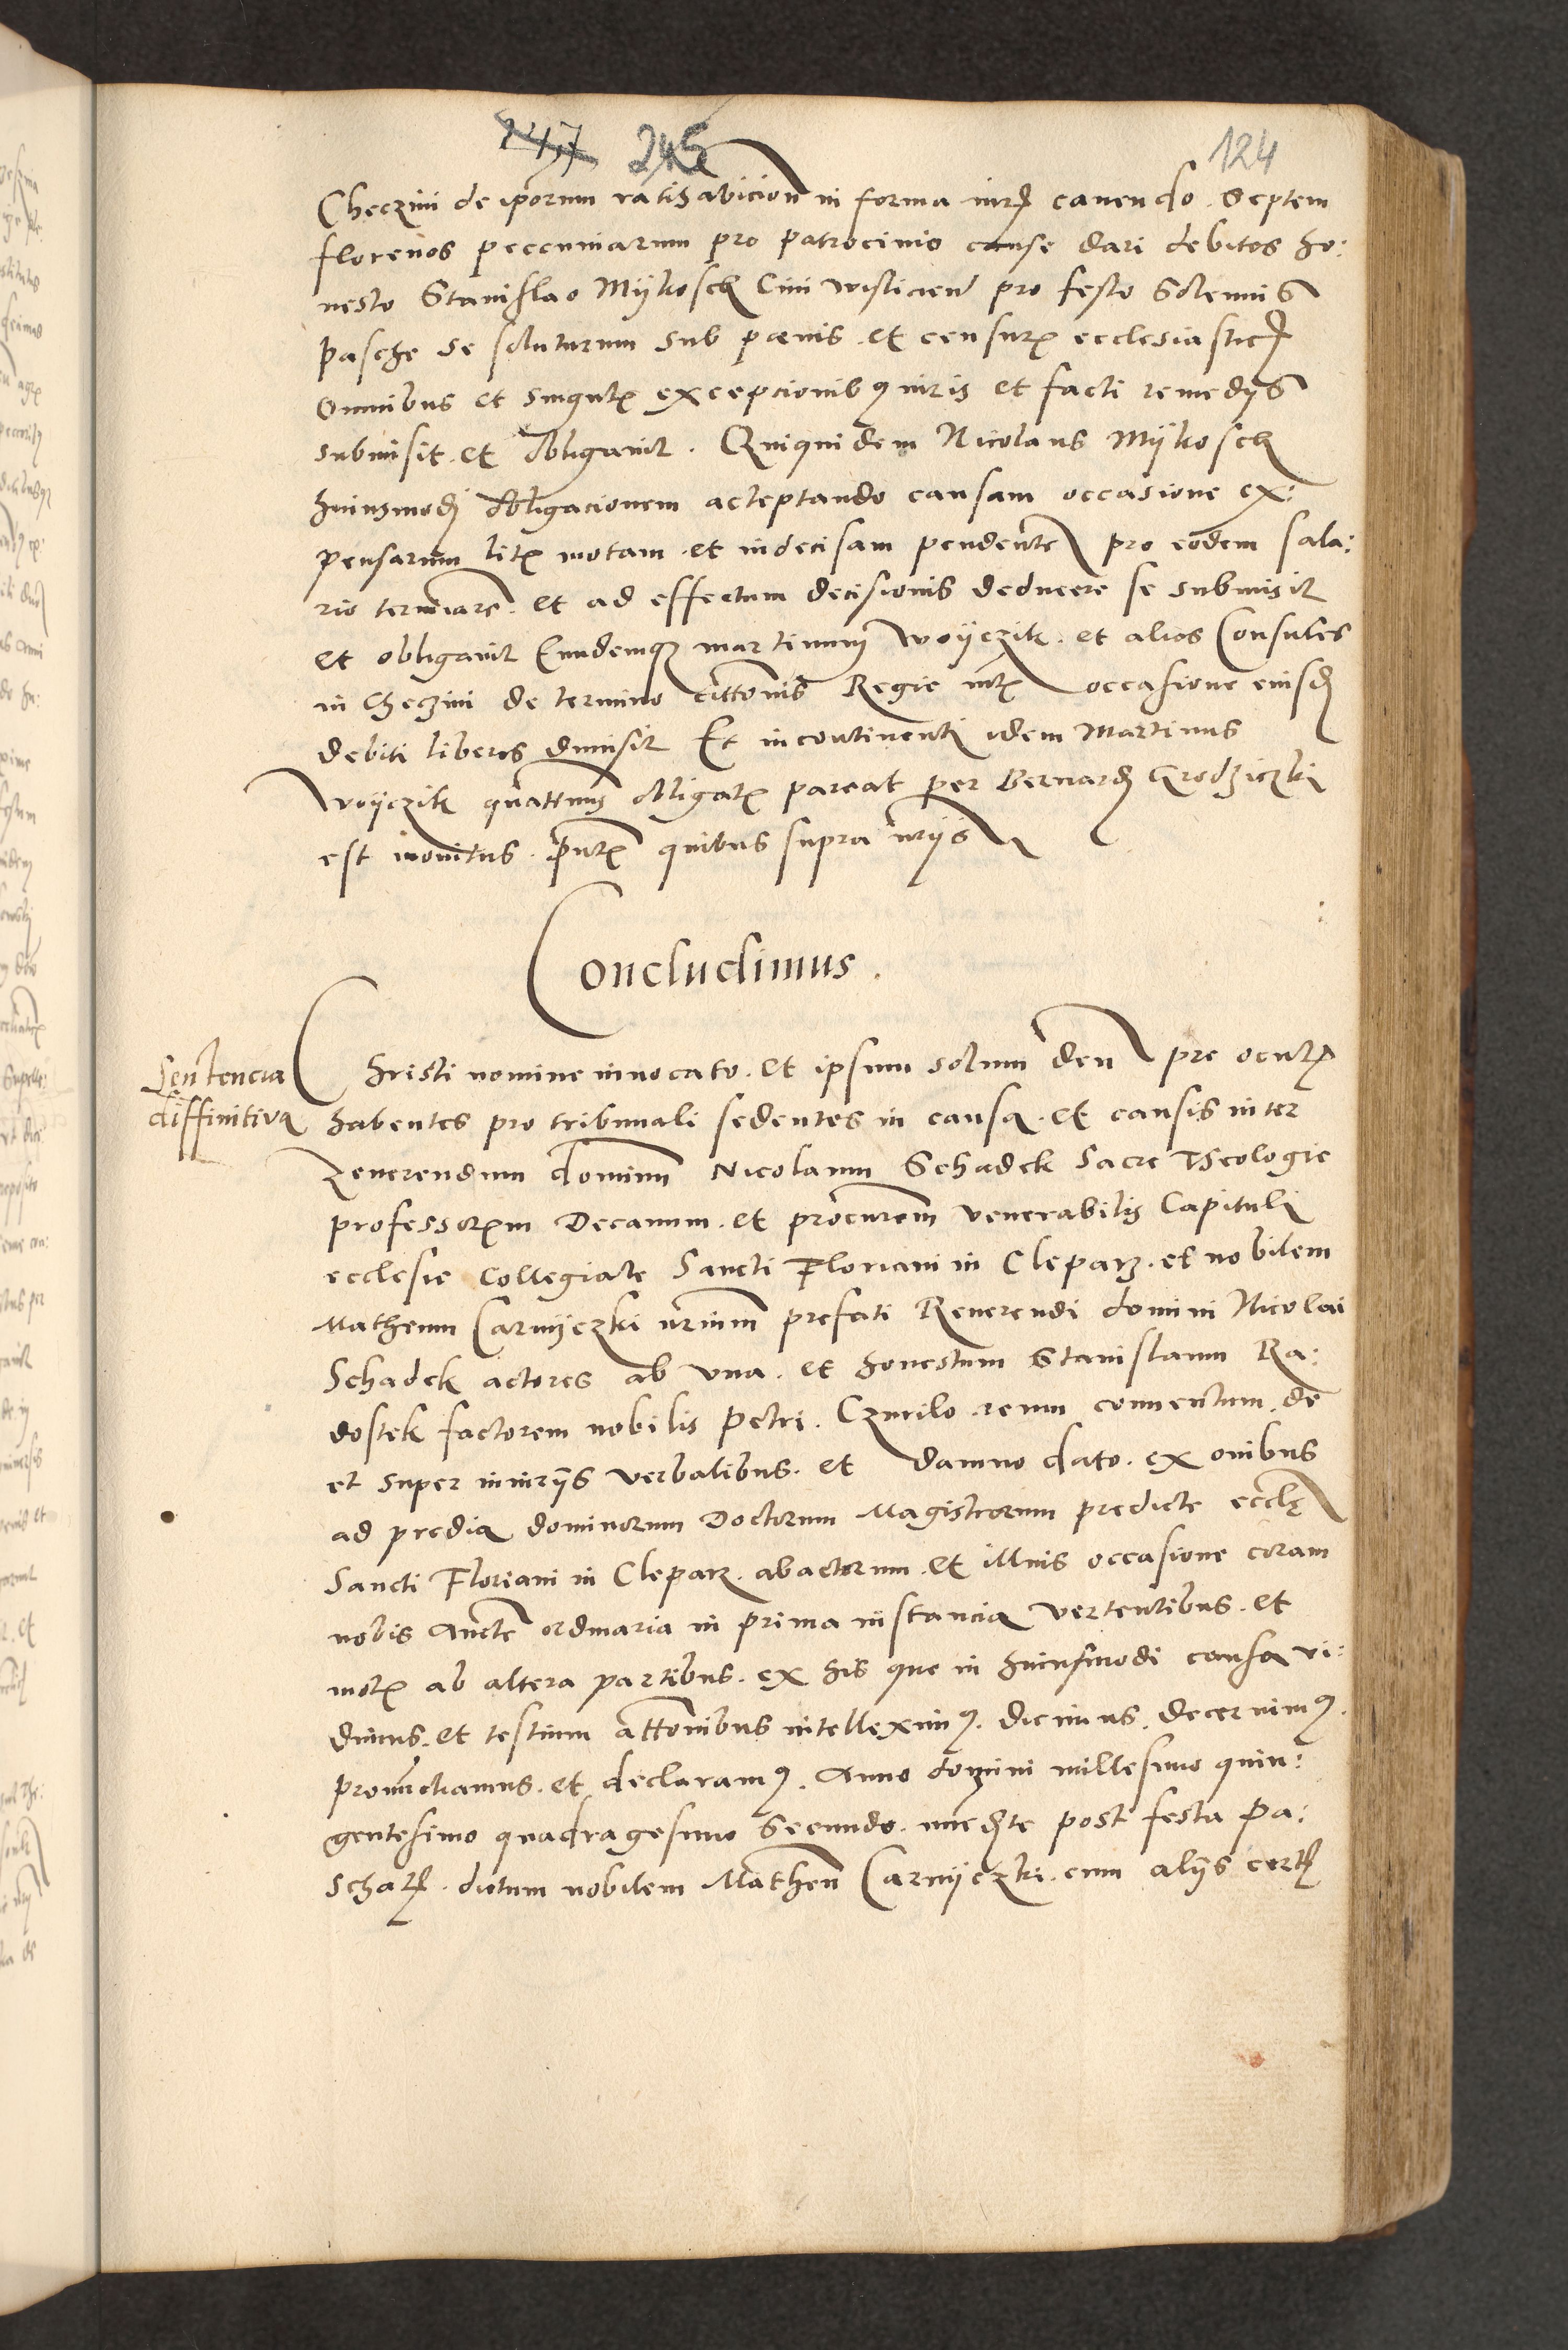 247 245 124
Checzini de iporum ratihabicion in forma iurꝭ cauendo. Septem
florenos peccuniarum pro patrocinio cause dari debitos ho:
nesto Stanislao Mÿkosch Ciui wisliciend pro festo Solennis
pasche se soluturum sub pœnis. et censurꝭ ecclesiasticꝭ
Omnibus et singulꝭ excepcionibꝰ iuris et facti remedijs
submisit. et obligauit. Quiquidem Nicolaus Mÿkosch
huiusmodj obligacionem acceptando causam occasione ex:
pensarum litꝭ motam. et indecisam pendente pro eodem sala:
rio terminare. et ad effectum decisionis deducere se submisit
et obligauit Eundemqꝫ martinum Woÿczik. et alios Consules
in Checzini de termino cittonis Regie occasione eiusd
debiti liberos dimisit Et incontinenti idem Martinus
Woÿczik quattenus obligatꝭ pareat per Bernard Grodziczki
est monitus. pntꝭ quibus supra
Concludimus.
Sentencia
diffinitiua
Christi nomine inuocato. et ipsum solum deu pre oculꝭ
habentes pro tribunali sedentes in causa. et causis inter
Reuerendum dominum Nicolaum Schadek Sacre Theologie
professorem Decanum. et procurem venerabilis Capituli
ecclesie Collegiate Sancti Floriani in Cleparz. et nobilem
Matheum Carnÿczki prefati Reuerendi domini Nicolai
Schadek actores ab vna. et honestum Stanislaum Ra:
dostek factorem nobilis Petri. Czurilo reum conuentum. de
et super iniurijs verbalibus. et damno dato. ex onibus
ad predia dominorum Doctorum Magistrorum predicte eccle
Sancti Floriani in Cleparz. abactorum. et illius occasione coram
nobis Aucte ordinaria in prima instancia vertentibus. et
motꝭ ab altera partibus. ex his que in huiusmodi causa vi:
dimus. et testium attonibus intelleximꝰ. dicimus. decernimꝰ.
pronunctiamus. et declaramꝰ. Anno domini millesimo quin:
gentesimo quadragesimo Secundo. post festa Pa:
schatꝭ. dictum nobilem Matheu Carnÿczki. cum alijs certꝭ